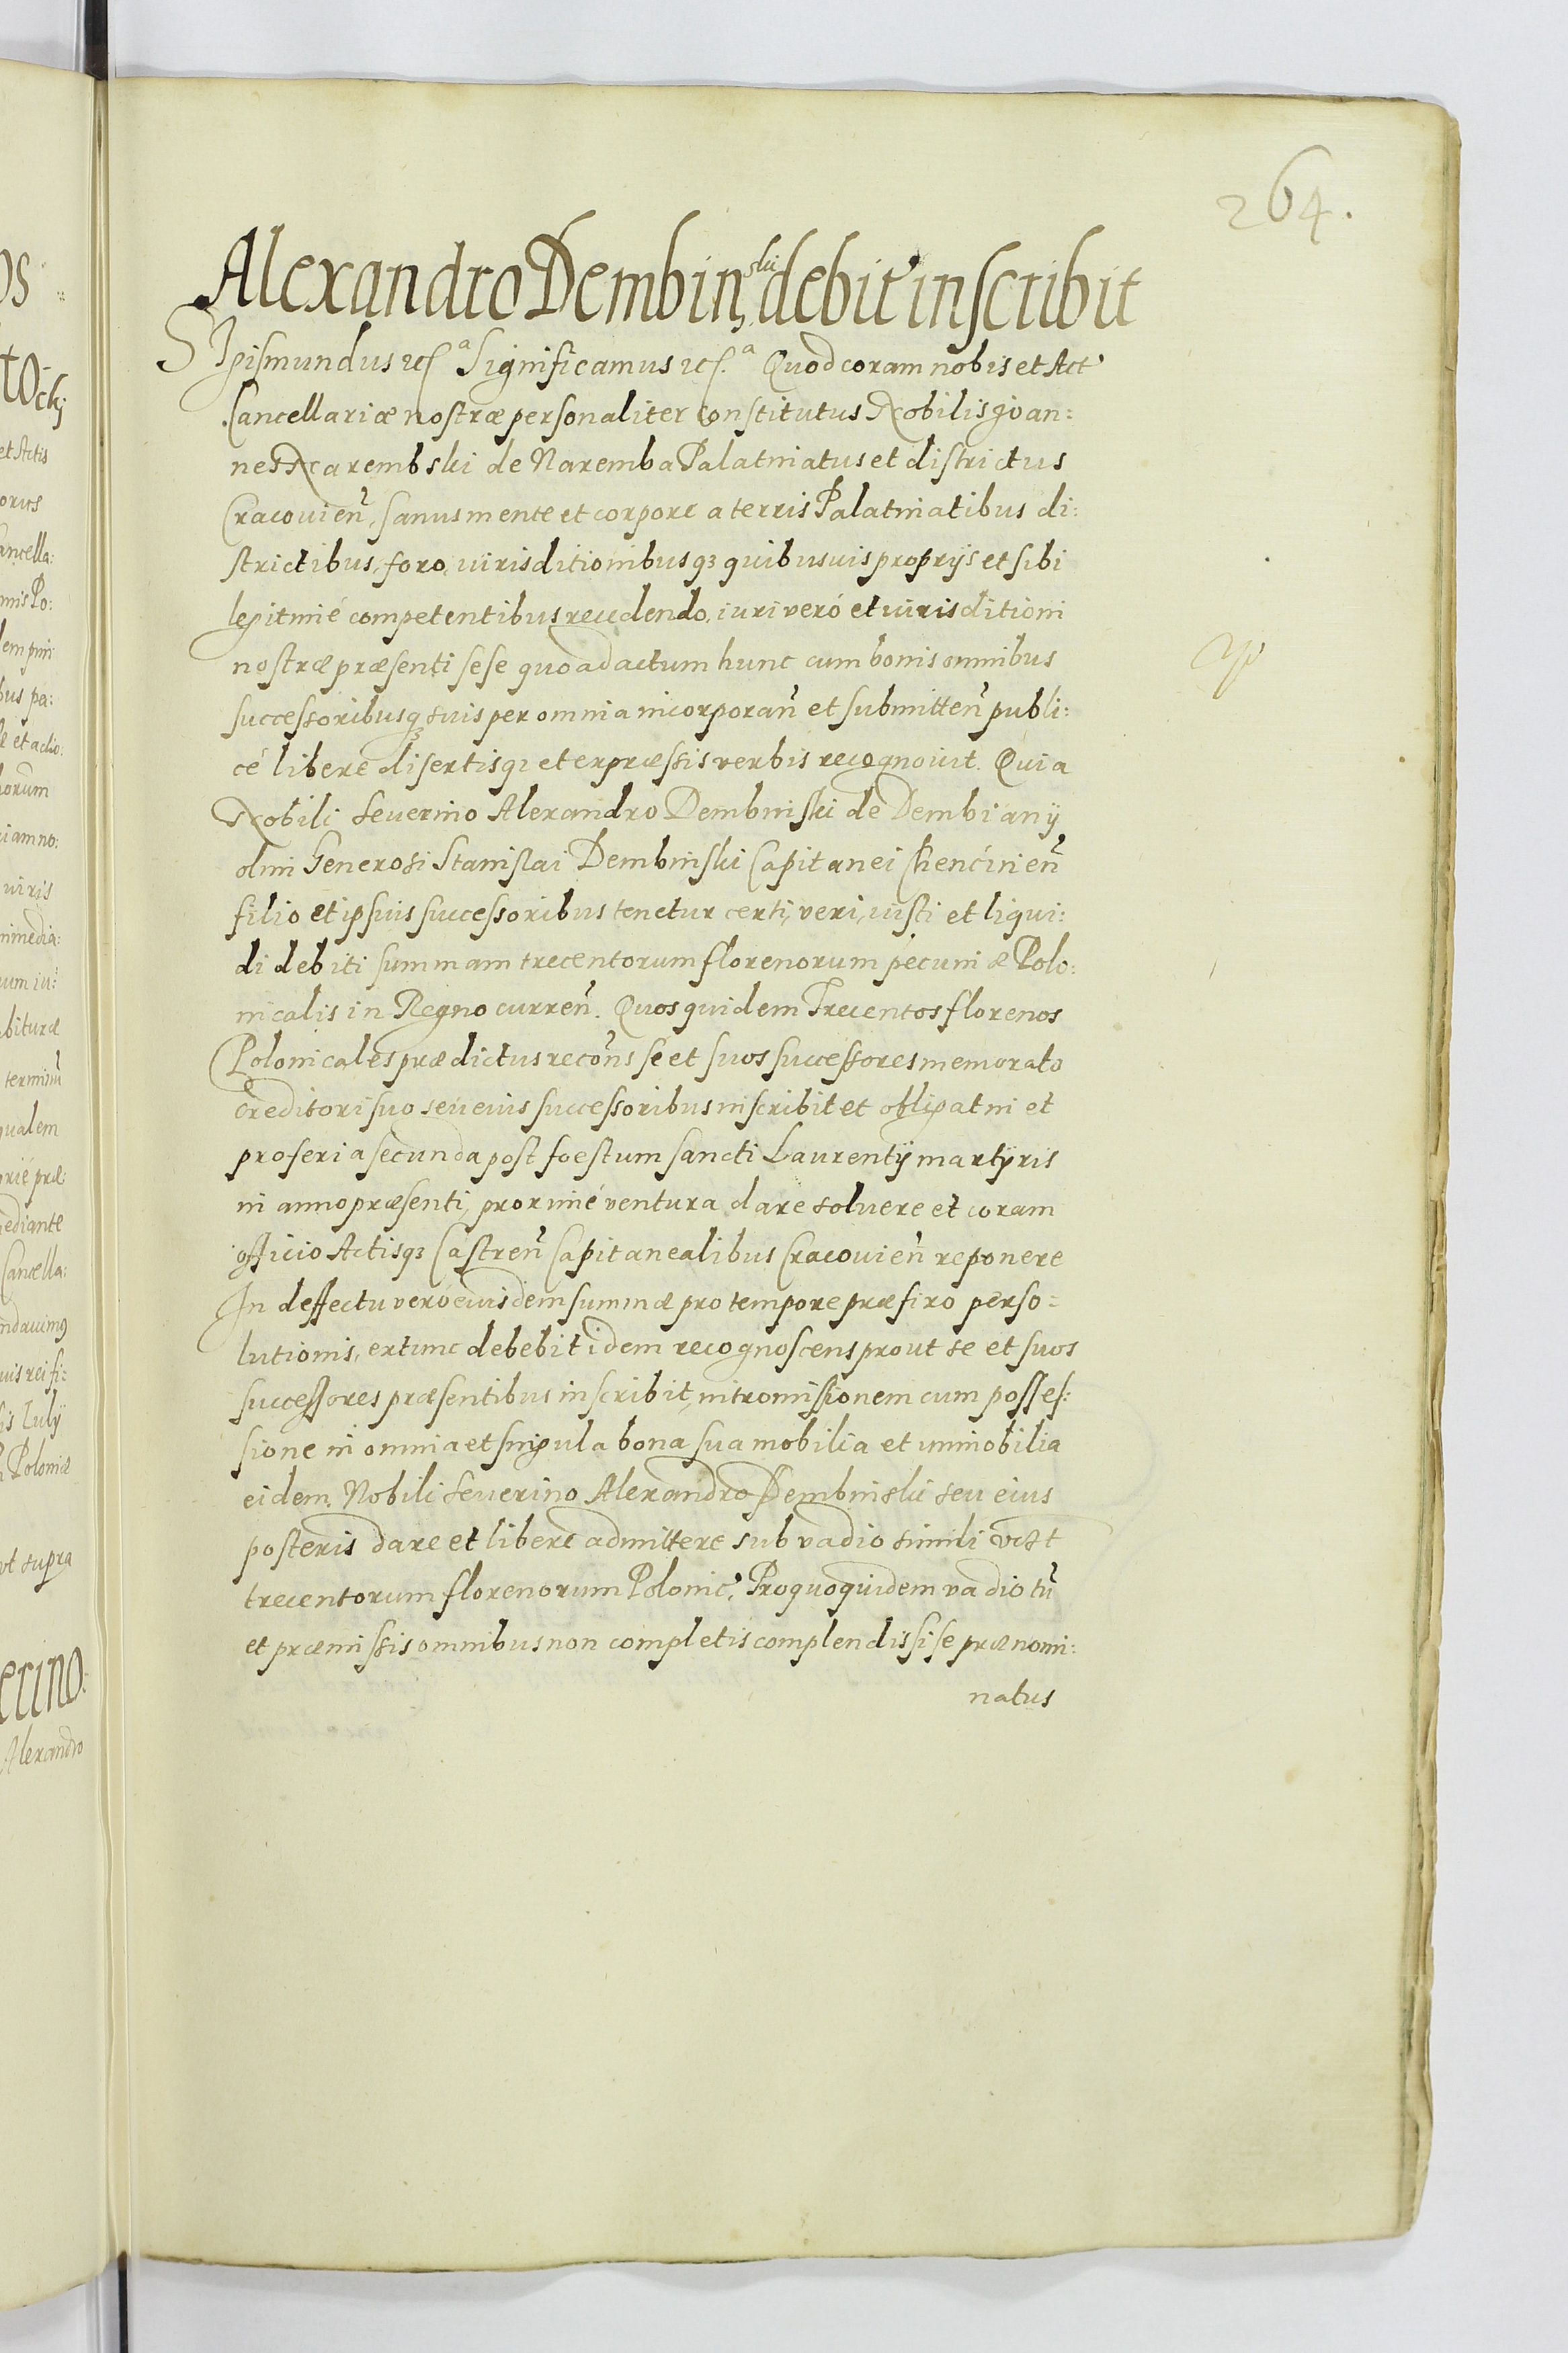 264.
Alexandro Dembin̄ski debit' inscribit
SIgismundus etc.ª Significamus etc.ª Quod coram nobis et Act'
Cancellariæ nostræ personaliter constitutus Nobilis Ioan:
nes Narembski de Naremba Palatinatus et districtus
Cracouien̄, sanus mente et corpore a terris Palatinatibus di:
strictibus, foro, iurisditionibusqȝ quibusuis proprijs et sibi
legitimé competentibus recedendo, iuri veró et iurisditioni
nostræ præsenti sese quo ad actum hunc cum bonis omnibus
successoribusqȝ suis per omnia incorporan̄ et submitten̄ publi:
cé liberé disertisqȝ et expræssis verbis recognouit. Quia
Nobili Seuerino Alexandro Dembinski de Dembiany
olim Generosi Stanislai Dembinski Capitanei Chencinien̄
filio et ipsius successoribus tenetur certi, veri, iusti et liqui:
di debiti summam trecentorum florenorum pecuniæ Polo:
nicalis in Regno curren̄. Quos quidem Trecentos florenos
Polonicales prædictus recon̄s sé et suos successores memorato
Creditori suo seu eius successoribus inscribit et obligat in et
pro feria secunda post foestum sancti Laurentij martyris
in anno præsenti, proximé ventura dare soluere et coram
officio Actisqȝ Castren̄ Capitanealibus Cracouien̄ reponere
In deffectu veró eiusdem summæ pro tempore præfixo perso=
lutionis, extunc debebit idem recognoscens prout se et suos
successores præsentibus inscribit, intromissionem cum posses:
sione in omnia et singula bona sua mobilia et immobilia
eidem Nobili Seuerino Alexandro Dembinski seu eius
posteris dare et liberé admittere sub vadio simili vczt
trecentorum florenorum Polonic'. Pro quo quidem vadio tū
et præmissis omnibus non completis complendis si se prænomi:
natus